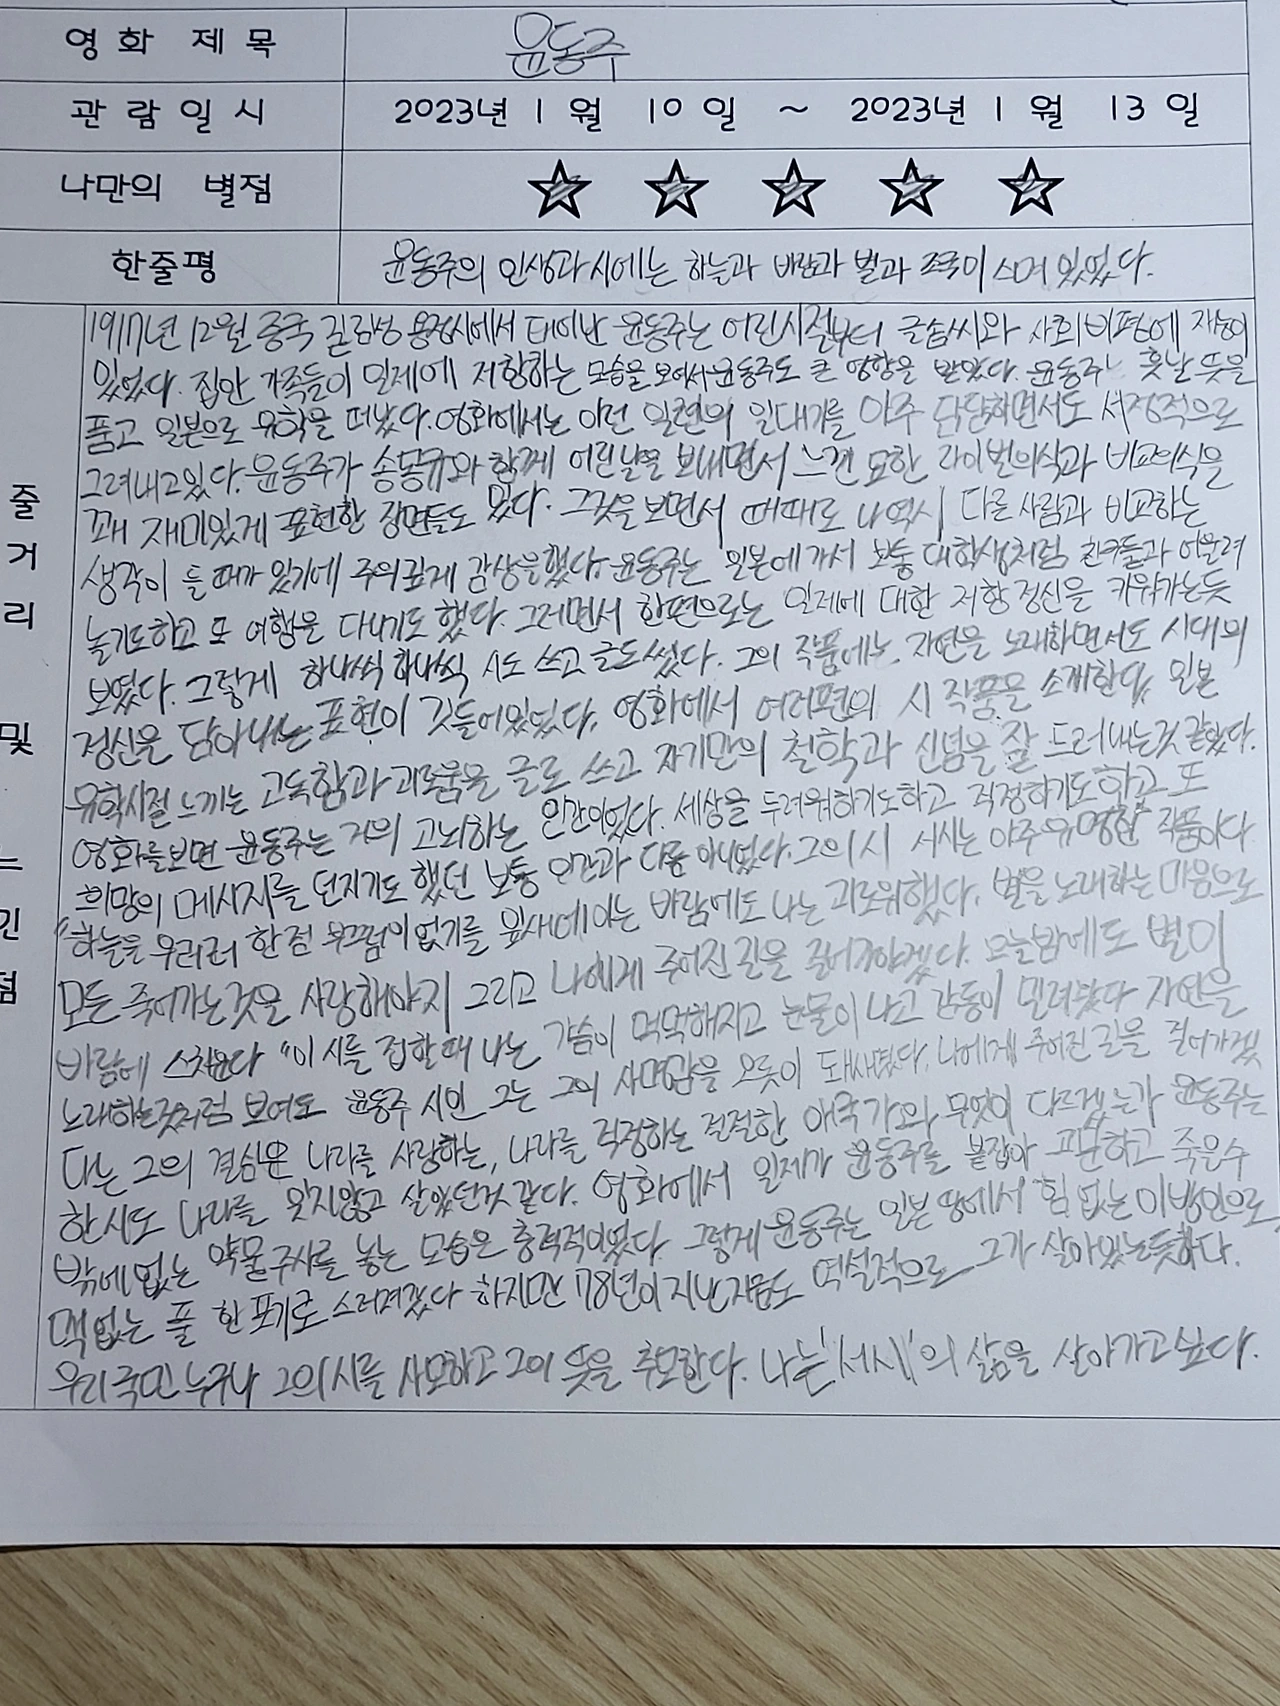 영화 제목 윤동주
관람일시 2023년 1월 10일 ~ 2023년 1월 13일
나만의 별점 ☆ ☆ ☆ ☆ ☆
한줄평 윤동주의 인생과 시에는 하늘과 바람과 별과 조국이 스며 있었다.
줄거리 및 느낀점
1917년 12월 중국 길림성 용정시에서 태어난 윤동주는 어린시절부터 글솜씨와 사회비평에 재능이
있었다. 집안 가족들이 일제에 저항하는 모습을 보아서 윤동주도 큰 영향을 받았다. 윤동주는 훗날 뜻을
품고 일본으로 유학을 떠났다. 영화에서는 이런 일련의 일대기를 아주 담담하면서도 서정적으로
그려내고있다. 윤동주가 송몽규와 함께 어린날을 보내면서 느낀 묘한 라이벌의식과 비교의식을
꽤 재미있게 표현한 장면들도 많다. 그것을 보면서 때때로 나 역시 다른 사람과 비교하는
생각이 들 때가 있기에 주의깊게 감상을했다. 윤동주는 일본에 가서 보통 대학생처럼 친구들과 어울려
놀기도하고 또 여행을 다니기도 했다. 그러면서 한편으로는 일제에 대한 저항 정신을 키워가는듯
보였다. 그렇게 하나씩 하나씩 시도 쓰고 글도 썼다. 그의 작품에는 자연을 노래하면서도 시대의
정신을 담아내는 표현이 깃들어있었다. 영화에서 여러편의 시 작품을 소개한다. 일본
유학시절 느끼는 고독함과 괴로움을 글로 쓰고 자기만의 철학과 신념을 잘 드러내는것 같았다.
영화를보면 윤동주는 거의 고뇌하는 인간이었다. 세상을 두려워하기도하고 걱정하기도하고 또
희망의 메시지를 던지기도 했던 보통 인간과 다름 아니었다. 그의 시 서시는 아주 유명한 작품이다
"하늘을 우러러 한점 부끄럼이 없기를 잎새에 이는 바람에도 나는 괴로워했다. 별을 노래하는 마음으로
모든 죽어가는것을 사랑해야지 그리고 나에게 주어진길을 걸어가야겠다. 오늘밤에도 별이
바람에 스치운다 "이 시를 접할때 나는 가슴이 먹먹해지고 눈물이 나고 감동이 밀려왔다 자연을
노래하는것처럼 보여도 윤동주 시인 그는 그의 사명감을 오롯이 되새겼다. 나에게 주어진 길을 걸어가겠
다는 그의 결심은 나라를 사랑하는, 나라를 걱정하는 절절한 애국가와 무엇이 다르겠는가 윤동주는
한시도 나라를 잊지않고 살았던것 같다. 영화에서 일제가 윤동주를 붙잡아 고문하고 죽을수
밖에 없는 약물주사를 놓는 모습은 충격적이었다. 그렇게 윤동주는 일본 땅에서 힘 없는 이방인으로
맥없는 풀 한 포기로 스러져갔다 하지만 78년이 지난 지금도 역설적으로 그가 살아있는듯하다.
우리 국민 누구나 그의 시를 사모하고 그의 뜻을 추모한다. 나는 '서시'의 삶을 살아가고 싶다.